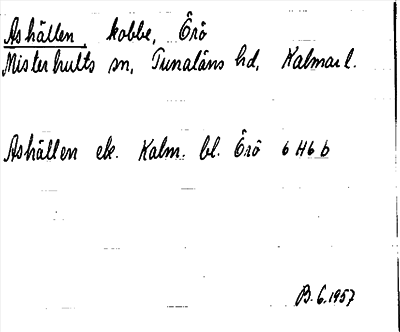 Ashällen kobbe, Örö
Misterhults sn, Tunaläns hd, Kalmar l.
Ashällen ek. Kalm. bl. Örö 6 H6 b
B. G. 1957